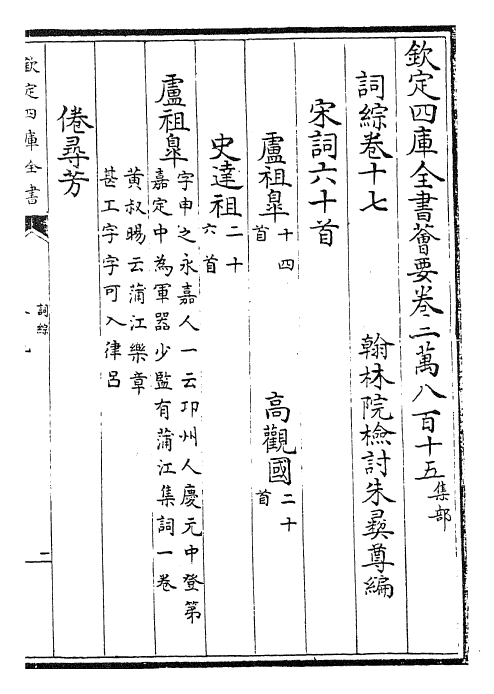 欽定四庫全書薈要卷二萬八百十五集部
詞綜卷十七
翰林院檢討朱彞尊編
宋詞六十首
盧祖臯十四首
高觀國二十首
史達祖二十六首
盧祖臯字申之永嘉人一云邛州人慶元中登第
嘉定中為軍器少監有蒲江集詞一卷
黃叔暘云蒲江樂章
甚工字字可入律呂
倦尋芳
欽定四庫全書
詞綜